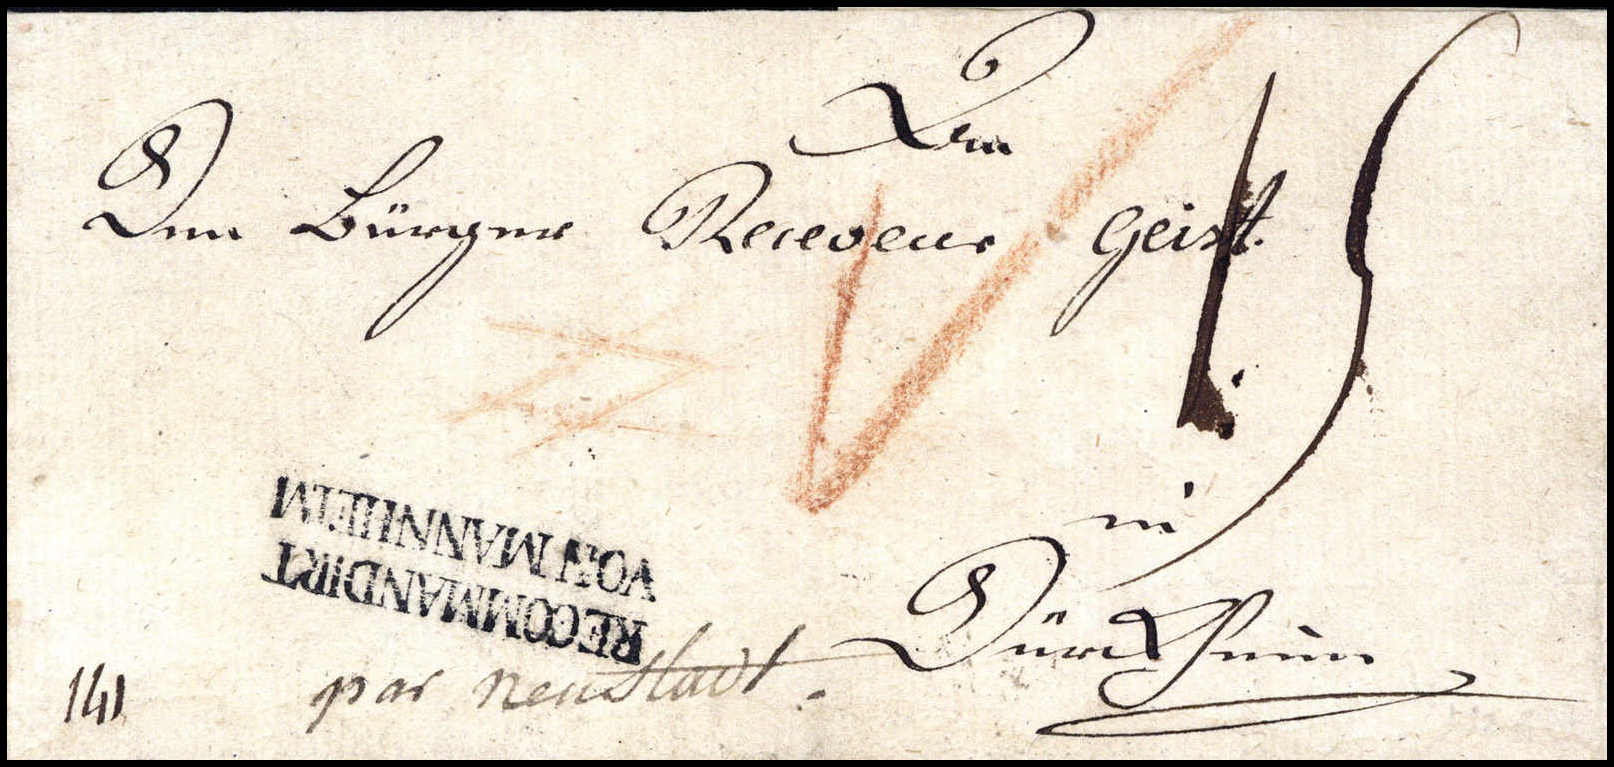 Dem Bürger Receveur Geist.
15
in
Dürckheim
RECOMMANDIRT
VON MANNHEIM
par Neustadt.
141